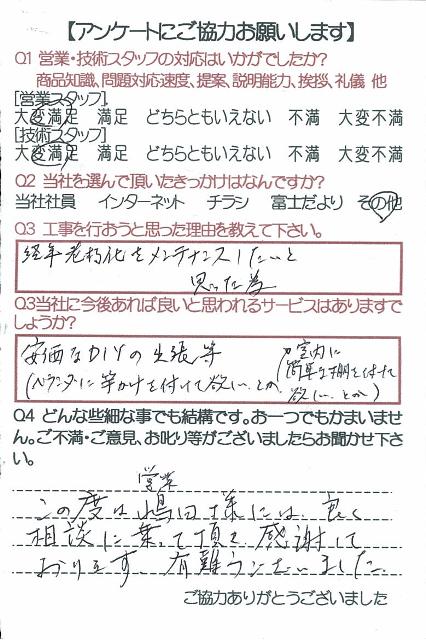 【アンケートにご協力お願いします】
Q1 営業・技術スタッフの対応はいかがでしたか?
商品知識、問題対応速度、提案、説明能力、挨拶、礼儀 他
[営業スタッフ]
大変満足 満足 どちらともいえない 不満 大変不満
[技術スタッフ]
大変満足 満足 どちらともいえない 不満 大変不満
Q2 当社を選んで頂いたきっかけはなんですか?
当社社員 インターネット チラシ 富士だより その他
Q3 工事を行おうと思った理由を教えて下さい。
経年老朽化をメンテナンスしたいと
思った為
Q3当社に今後あれば良いと思われるサービスはありますで
しょうか?
安価なDIYの出張等
(ベランダに竿かけを付けて欲しい、とか
室内に
簡単な棚を付けて
欲しい、とか)
Q4 どんな些細な事でも結構です。お一つでもかまいませ
ん。ご不満・ご意見、お叱り等がございましたらお聞かせ下さ
い。
営業
この度は嶋田様には、良く
相談に乗って頂き、感謝して
おります。有難うございました。
ご協力ありがとうございました